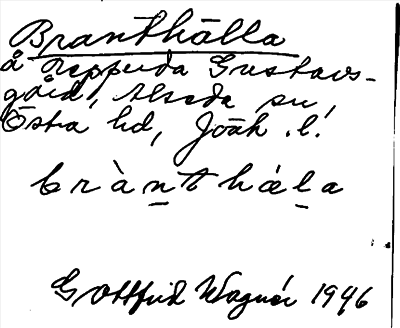 Branthälla
å Repperda Gustavs-
gård, Alseda sn,
Östra hd, Jönk. l.
brànthála
Gottfrid Wagnér 1946